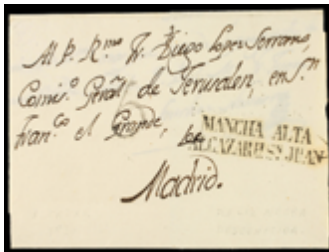 Al P. R.mo Fr. Diego Lopez Serrano,
Comis.o Gen.al de Jerusalen, en S.n
Fran.co el Grande, de
MANCHA ALTA
ALCAZAR D S.n JUAN
Madrid.